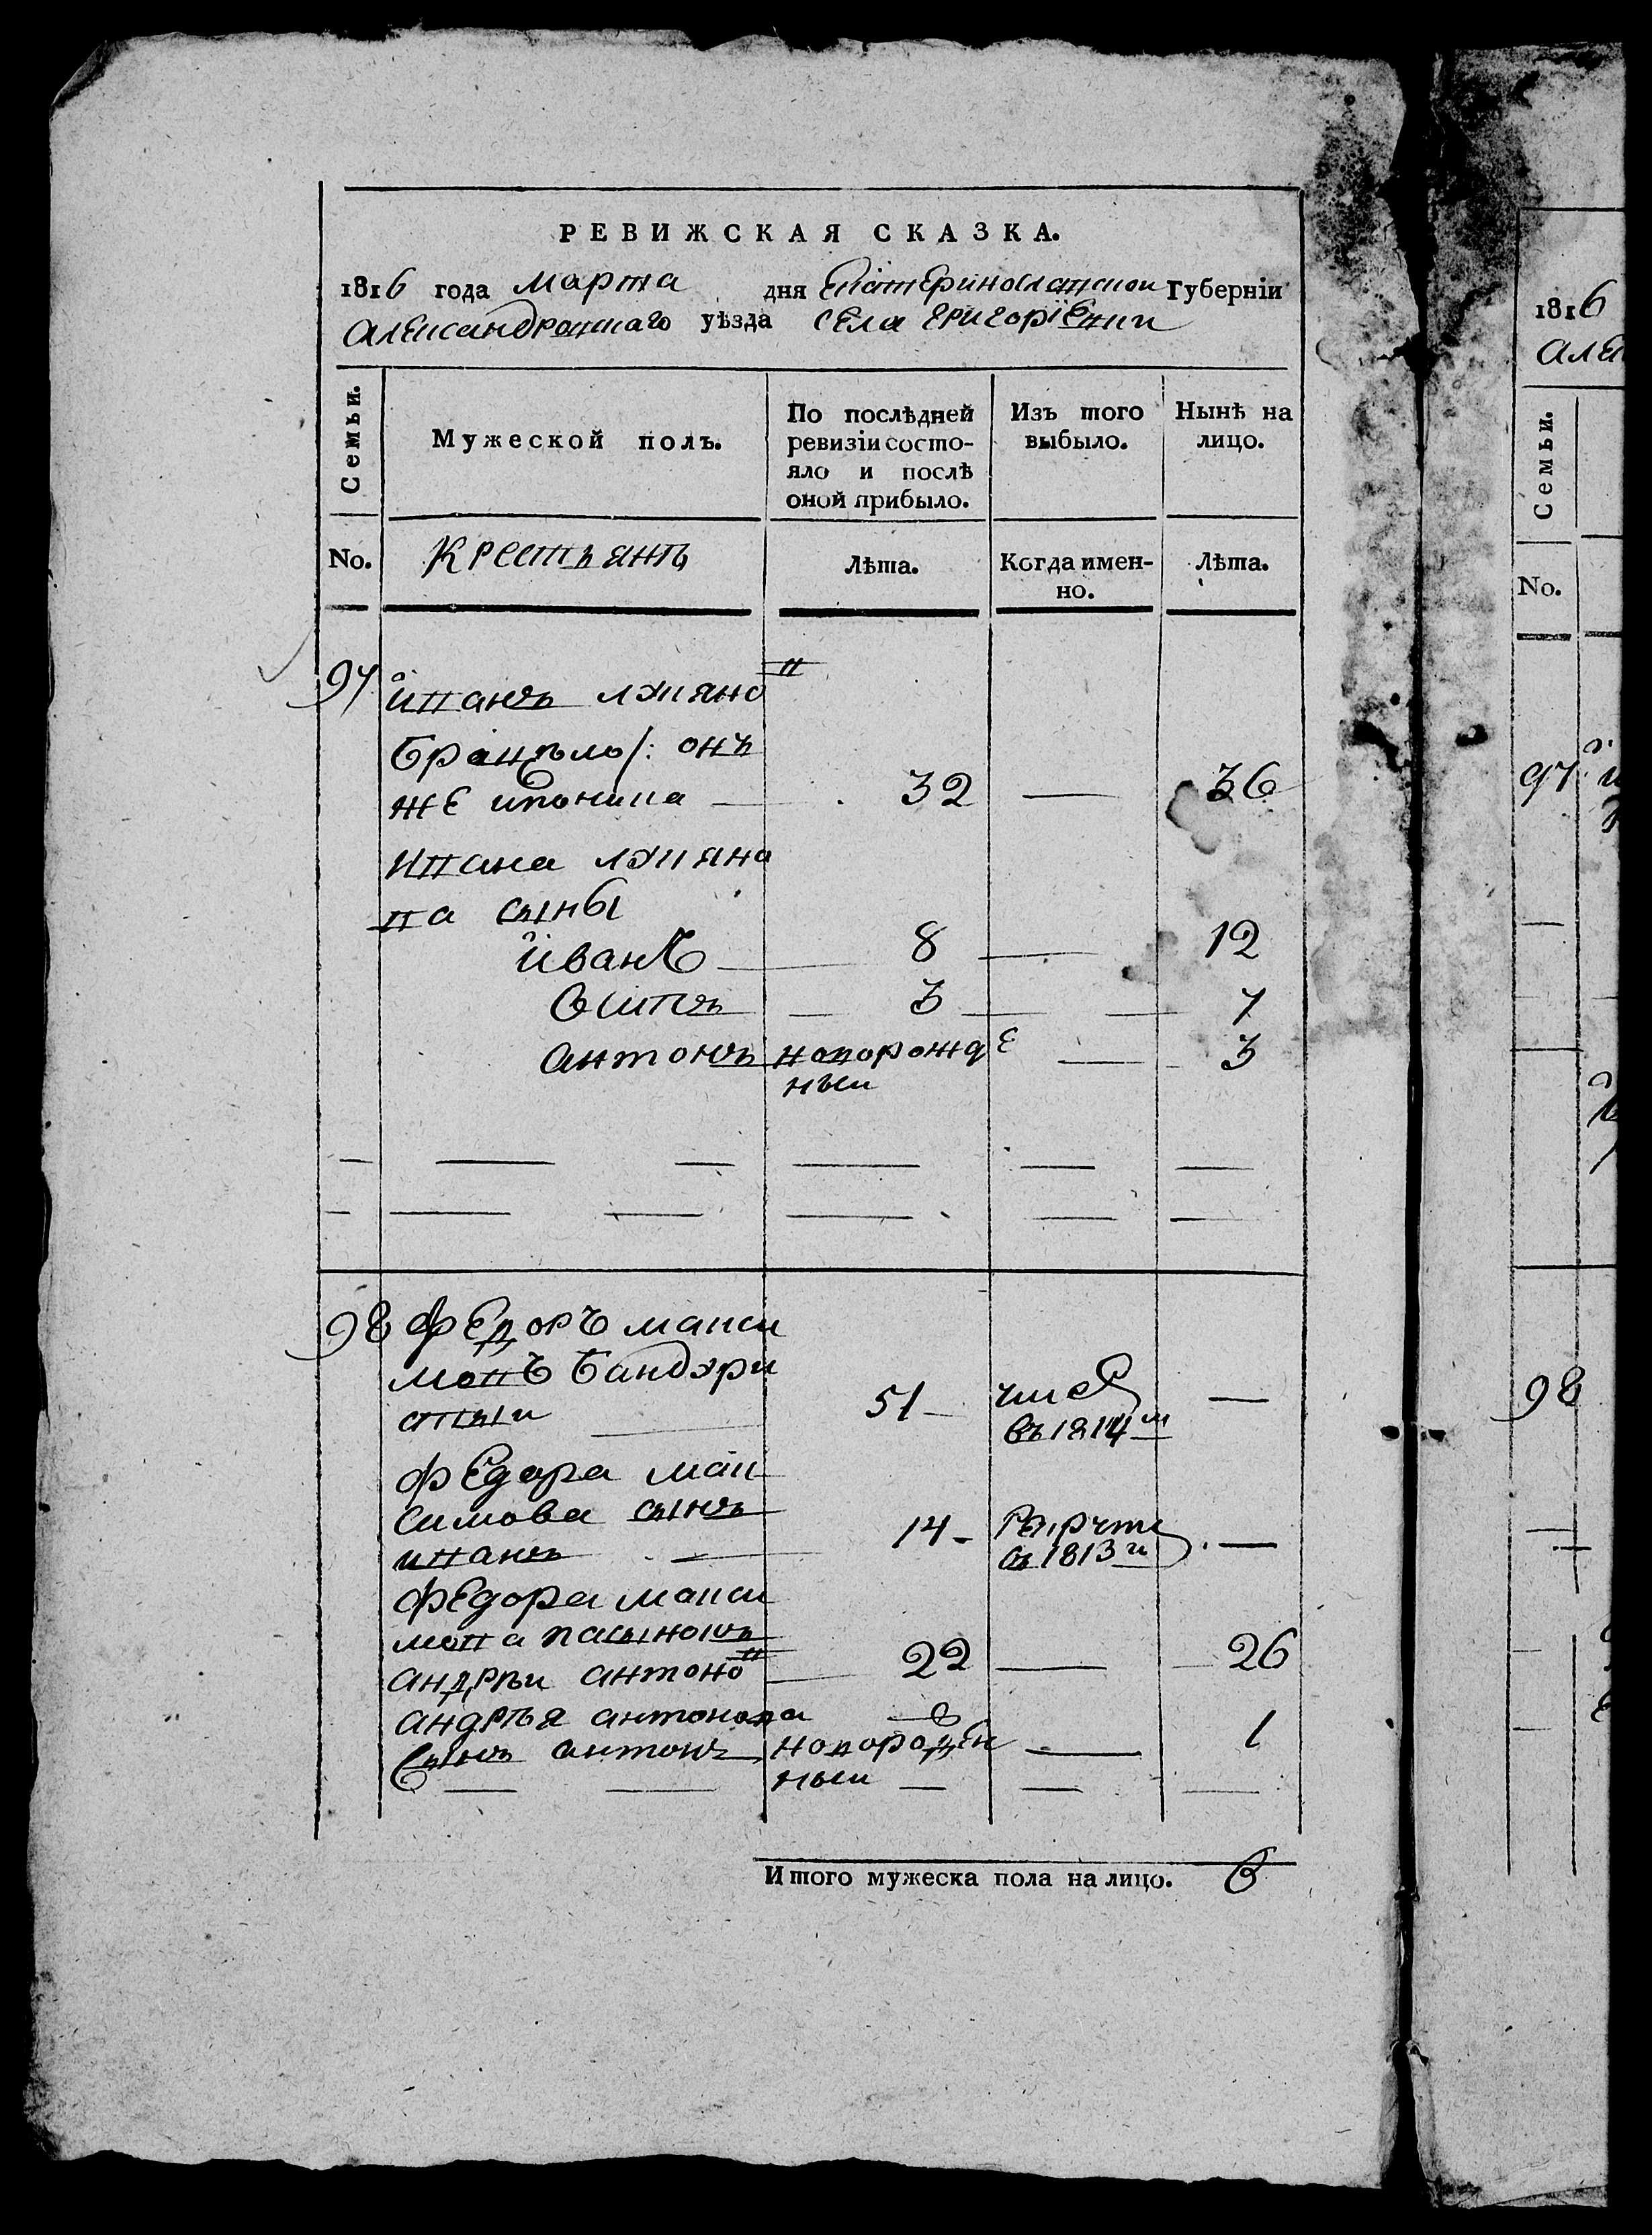 РЕВИЖСКАЯ СКАЗКА.
1816 года марта дня Екатеринославской Губерніи
Александровскаго уѣзда села Григоріевки
Семьи.
Мужеской полъ.
По послѣдней ревизіи состо-
яло и послѣ
оной прибыло.
Изъ того
выбыло.
Нынѣ на
лицо.
No.
Крестьянъ
Лѣта.
Когда имен-
но.
Лѣта.
97 иванъ лукяновъ
же 32 — 36
ивана лукяно
ва сыны
иванъ — 8 — 12
осипъ — 3 — 7
антонъ новорожде — 3
ныи
98 федоръ макси
мовъ бандур
51 —
въ 1814м
федора мак
симова сынъ
иванъ — 14 — рекруты —
въ 1813м
федора макси
мова пасынокъ
андреи антоновъ — 22 — 26
андрѣя антонова
сынъ антонъ новорожден — 1
ныи —
Итого мужеска пола на лицо. 6
1816
Алек
Семьи.
No.
97
98